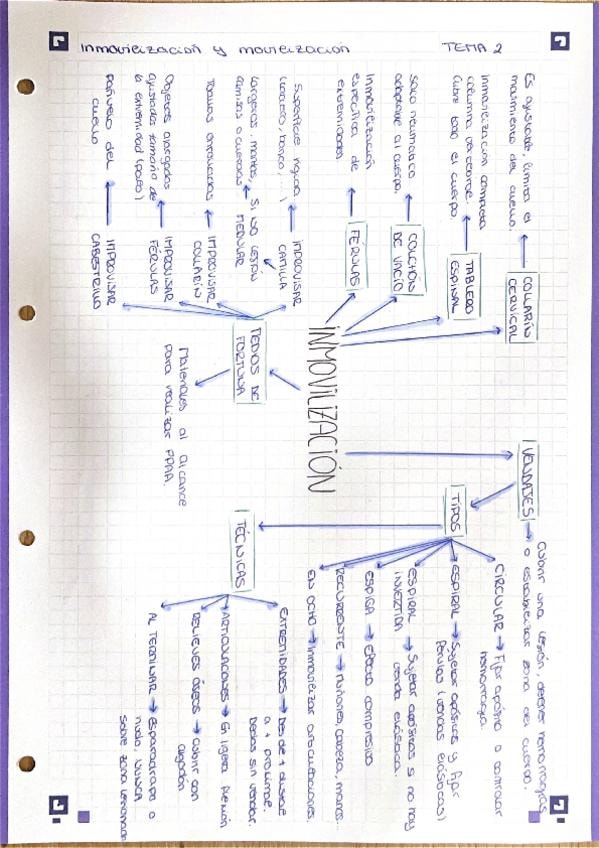 Inmovilización y movilización
TEMA 2
INMOVILIZACIÓN
COLLARÍN
CERVICAL
Es ajustable, limita el
movimiento del cuello.
TABLERO
ESPINAL
Inmovilización completa
columna vertebral.
Cubre todo el cuerpo
COLCHÓN
DE VACÍO
Saco neumático
adaptable al cuerpo.
FÉRULAS
Inmovilización
específica de
extremidades
MEDIOS DE
FORTUNA
Materiales al alcance
para realizar PPAA.
IMPROVISAR
CAMILLA
Superficie rígida
(tablero, banco, ...)
SI NO LESIÓN
MEDULAR
Largeros mantas,
camisas o cuerdas
IMPROVISAR
COLLARÍN
Toallas enrolladas
IMPROVISAR
FÉRULAS
Objetos alargados
ajustados tamaño de
la extremidad (palo)
IMPROVISAR
CABESTRILLO
Pañuelo del
cuello
VENDAJES
Cubrir una lesión, detener hemorragias
o estabilizar zona del cuerpo.
TIPOS
CIRCULAR → Fijar apósito o controlar
hemorragia.
ESPIRAL → Sujetar apósitos y fijar
férulas (vendas elásticas)
ESPIRAL
INVERTIDA → Sujetar apósitos si no hay
venda elástica.
ESPIGA → Efecto compresivo
RECURRENTE → Muñones, cabeza, manos...
EN OCHO → Inmovilizar articulaciones.
TÉCNICAS
EXTREMIDADES → Des de + distal
a + proximal.
Dedos sin vendar.
ARTICULACIONES → En ligera flexión
RELIEVES ÓSEOS → Cubrir con
algodón
AL TERMINAR → Esparadrapo o
nudo, NUNCA
sobre zona lesionada